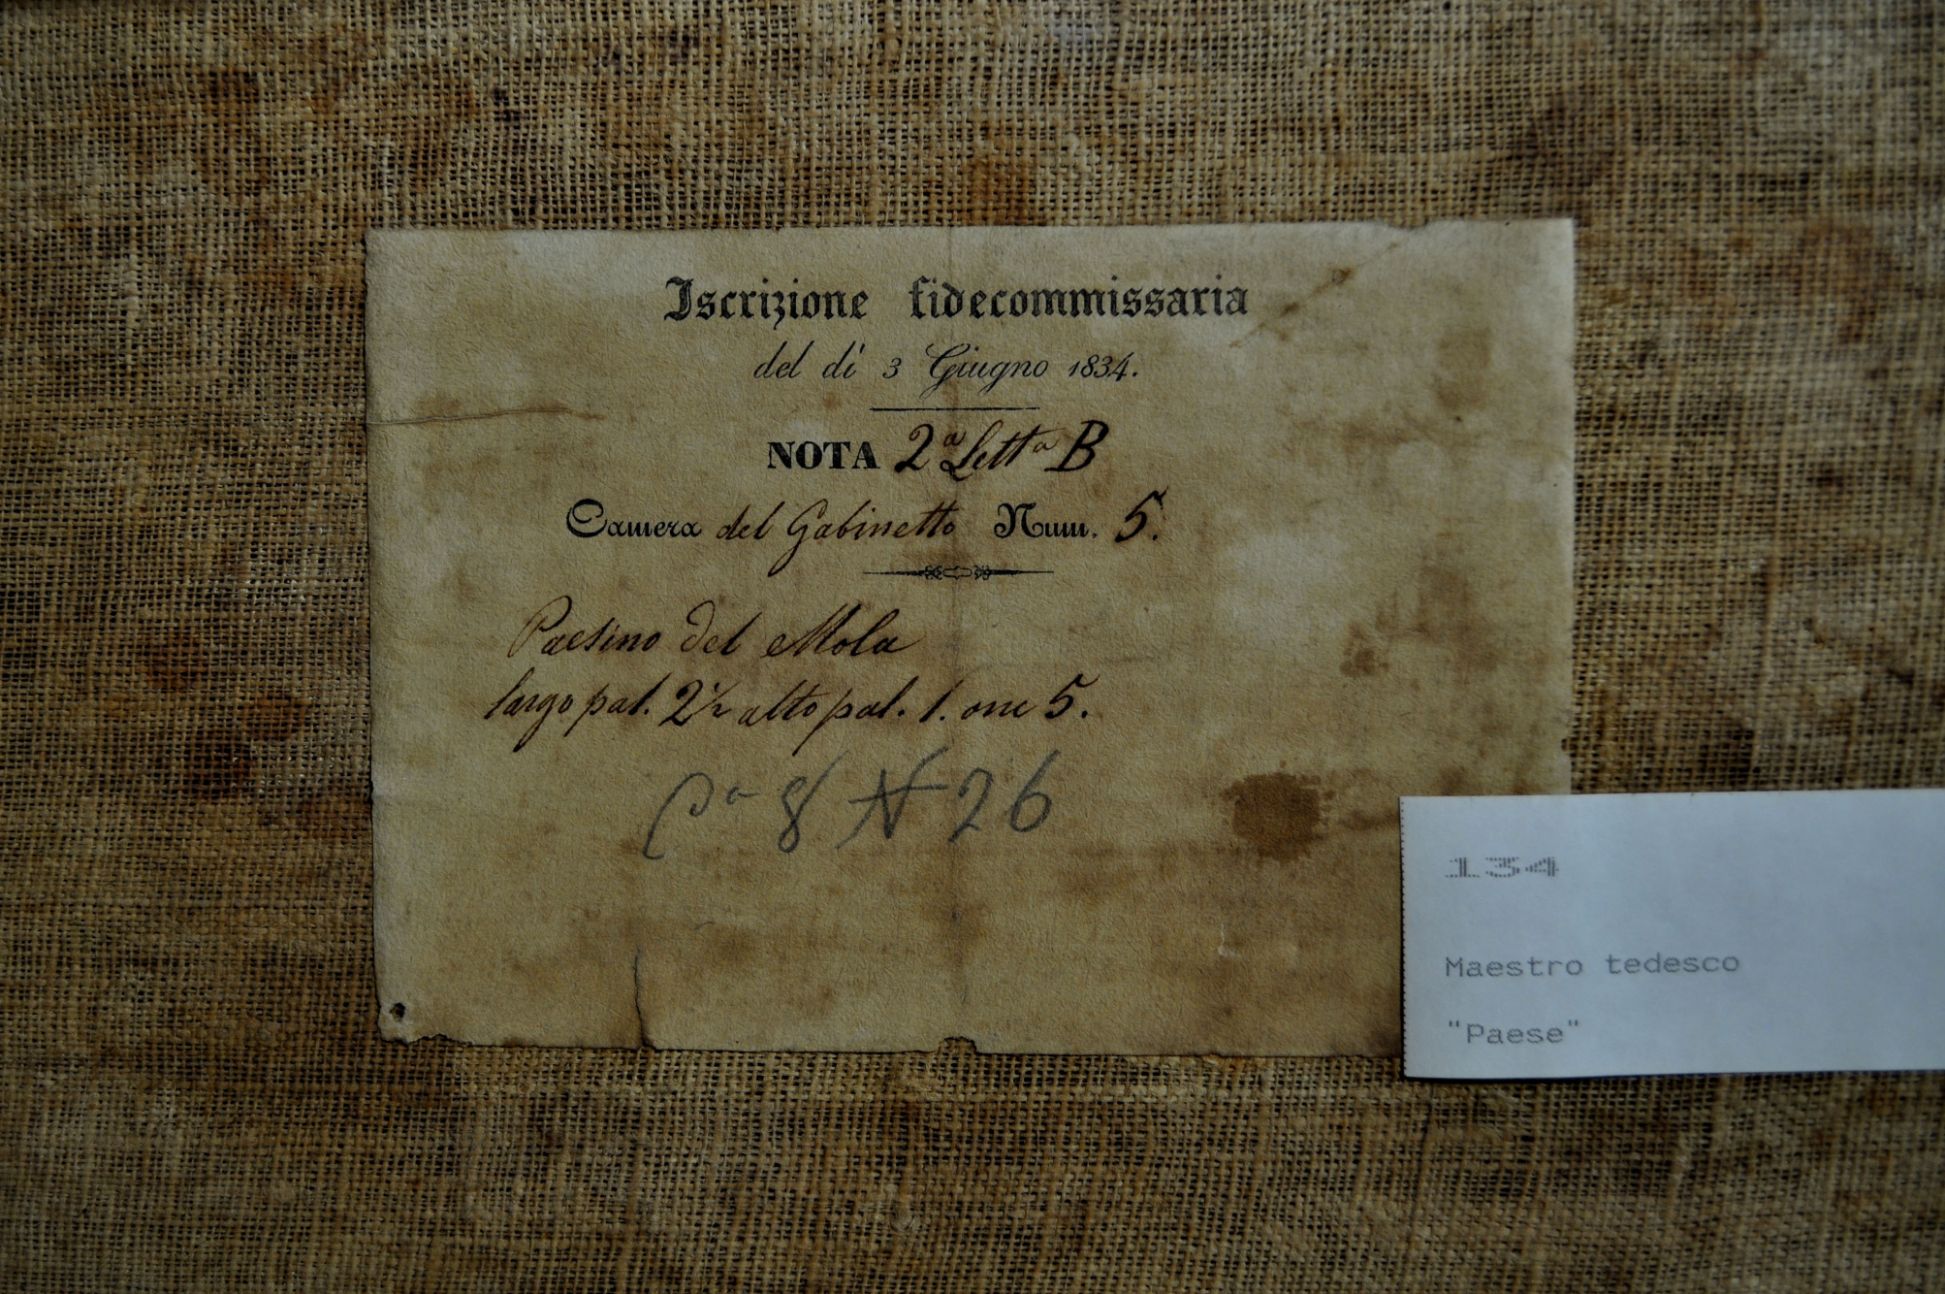 Iscrizione fidecommissaria
del dì 3 Giugno 1834.
NOTA 2ª Lettª B
Camera del Gabinetto Num. 5.
Paesino del Mola
largo pal. 2½ alto pal. 1. onc 5.
Cª 8 N 26
134
Maestro tedesco
"Paese"